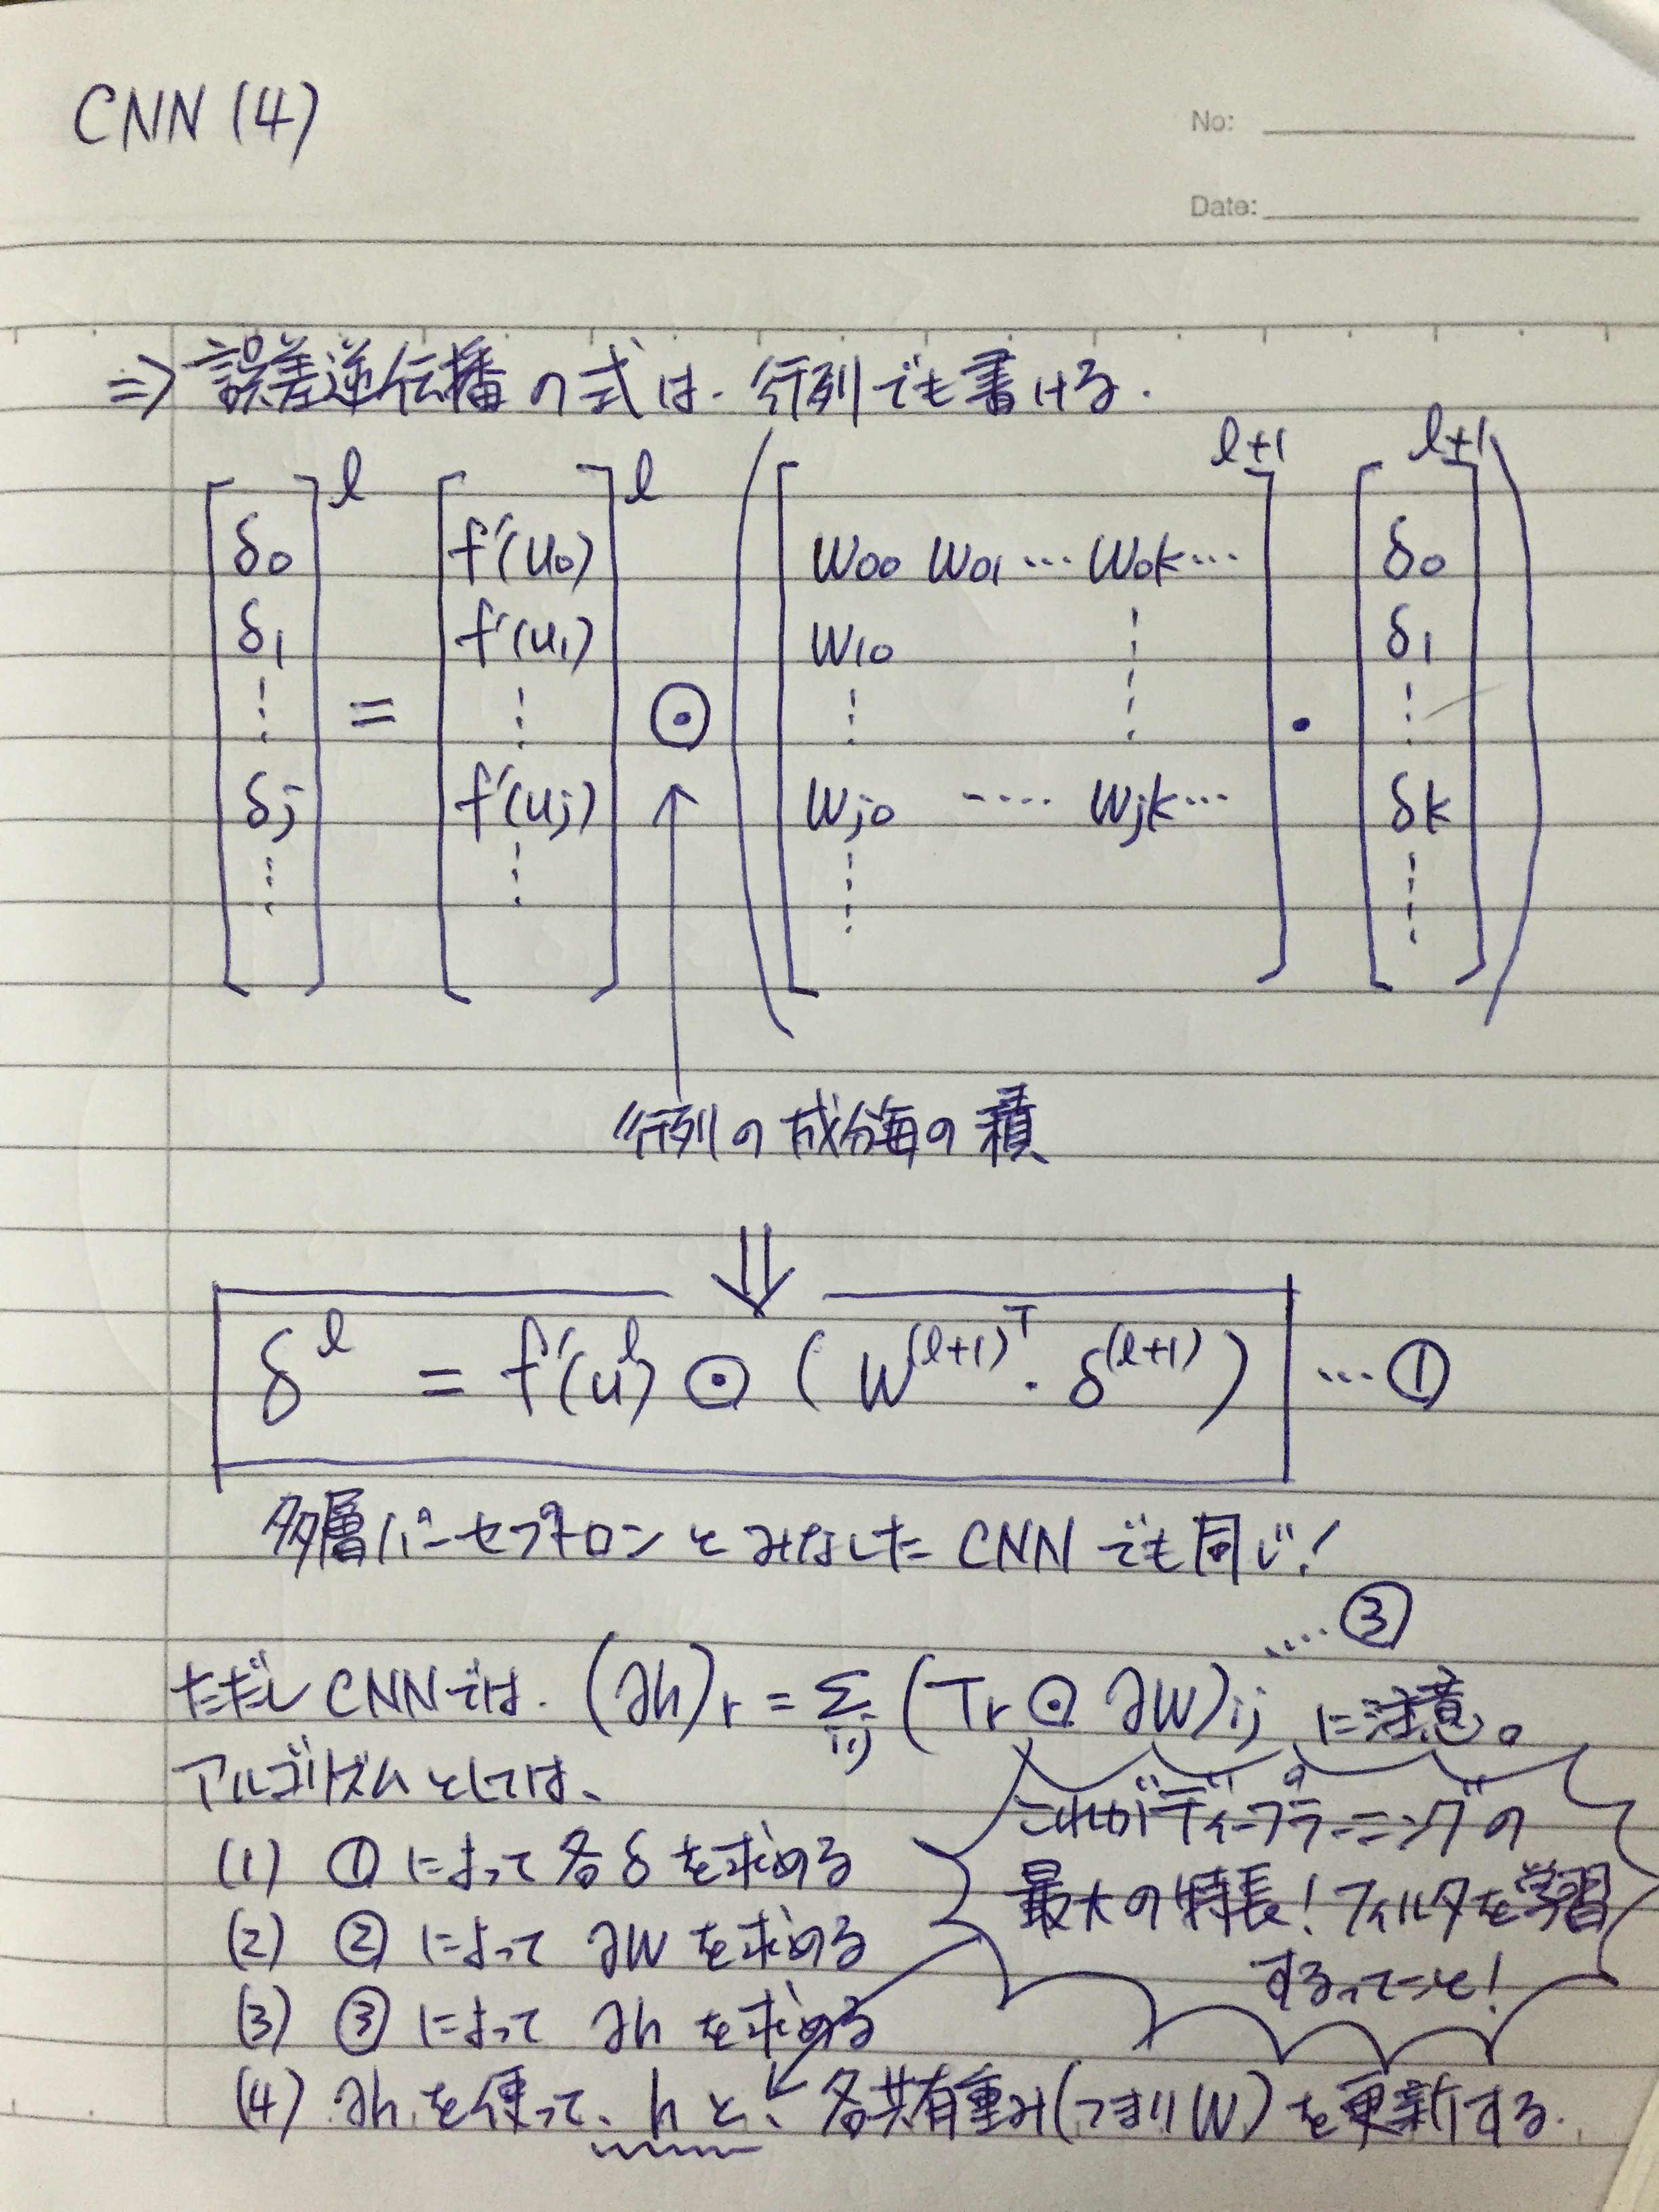 CNN (4)
No:
Date:
⇒ 誤差逆伝播の式は、行列でも書ける.
[δ0 δ1 ⋮ δj ⋮]^l = [f'(u0) f'(u1) ⋮ f'(uj) ⋮]^l ⊙ ( [w00 w01 … w0k … w10 ⋮ ⋮ wj0 …… wjk … ⋮]^l+1 · [δ0 δ1 ⋮ δk ⋮]^l+1 )
行列の成分毎の積
⇓
δ^l = f'(u^l) ⊙ ( W^(l+1)^T · δ^(l+1) ) … ①
多層パーセプトロンとみなしたCNNでも同じ!
ただしCNNでは、(∂h)r = Σij (Tr ⊙ ∂W)ij …… ③ に注意。
アルゴリズムとしては、
(1) ①によって各δを求める
(2) ②によって ∂W を求める
(3) ③によって ∂h を求める
(4) ∂h を使って、h と、各共有重み(つまりW)を更新する.
これがディープラーニングの
最大の特長! フィルタを学習
するってこと!